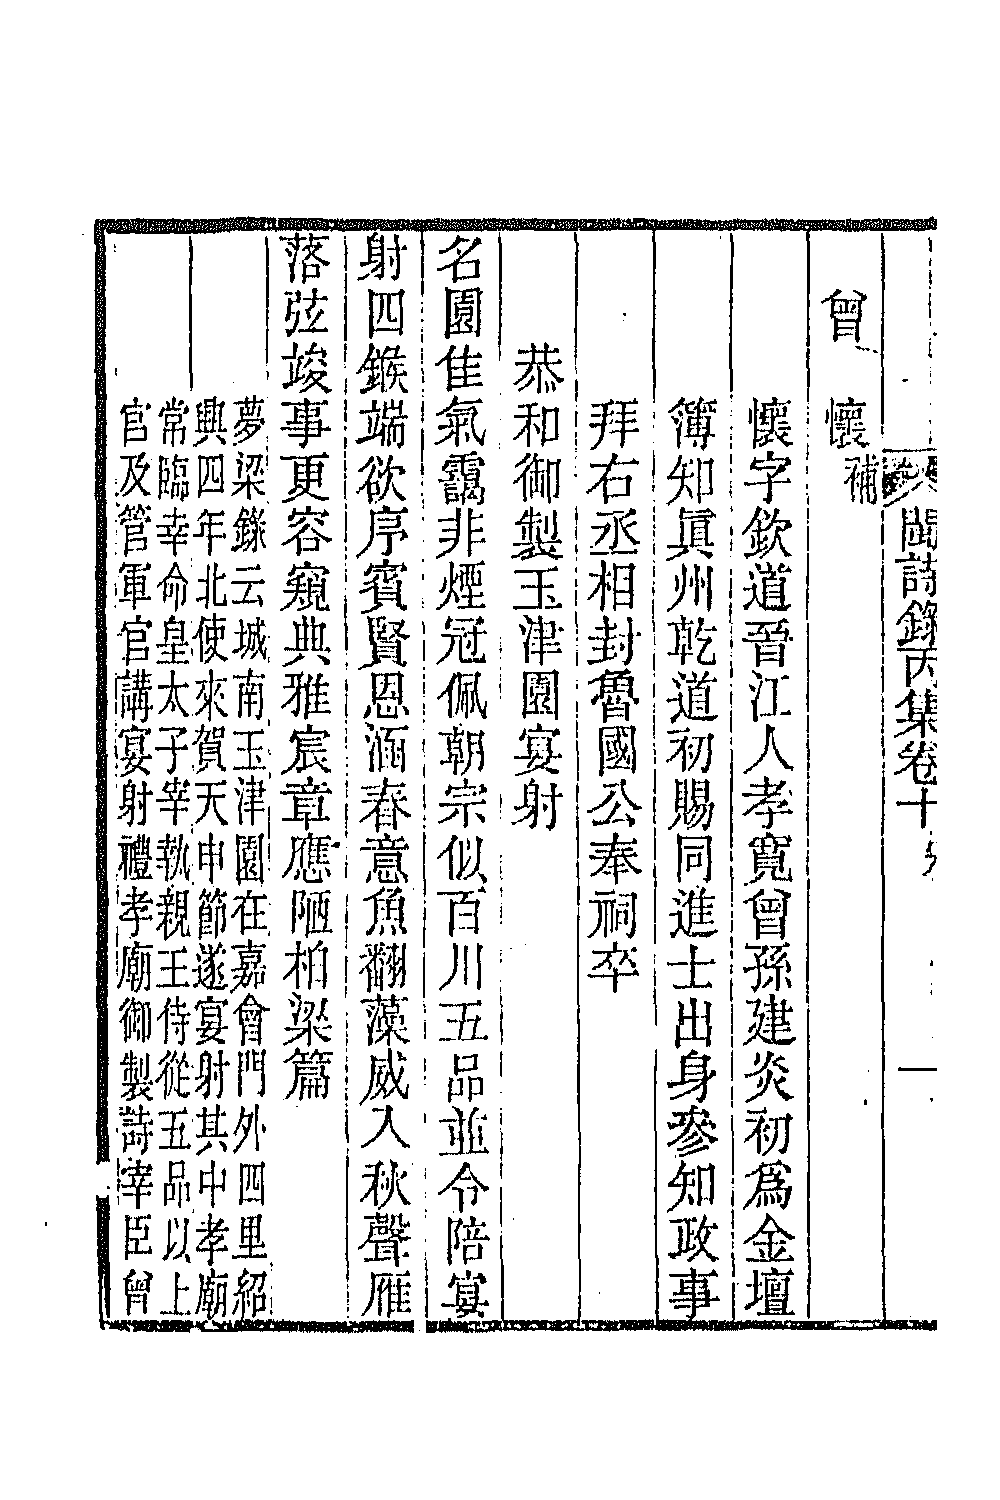 閩詩錄丙集卷十 一
曾懷補
懷字欽道晉江人孝寬曾孫建炎初爲金壇
簿知眞州乾道初賜同進士出身參知政事
拜右丞相封魯國公奉祠卒
恭和御製玉津園宴射
名園佳氣靄非煙冠佩朝宗似百川五品並令陪宴
射四鍭端欲序賓賢恩涵春意魚翻藻威入秋聲雁
落弦竣事更容窺典雅宸章應陋柏梁篇
夢梁錄云城南玉津園在嘉會門外四里紹
興四年北使來賀天申節遂宴射其中孝廟
常臨幸命皇太子宰執親王侍從五品以上
官及管軍官講宴射禮孝廟御製詩宰臣曾